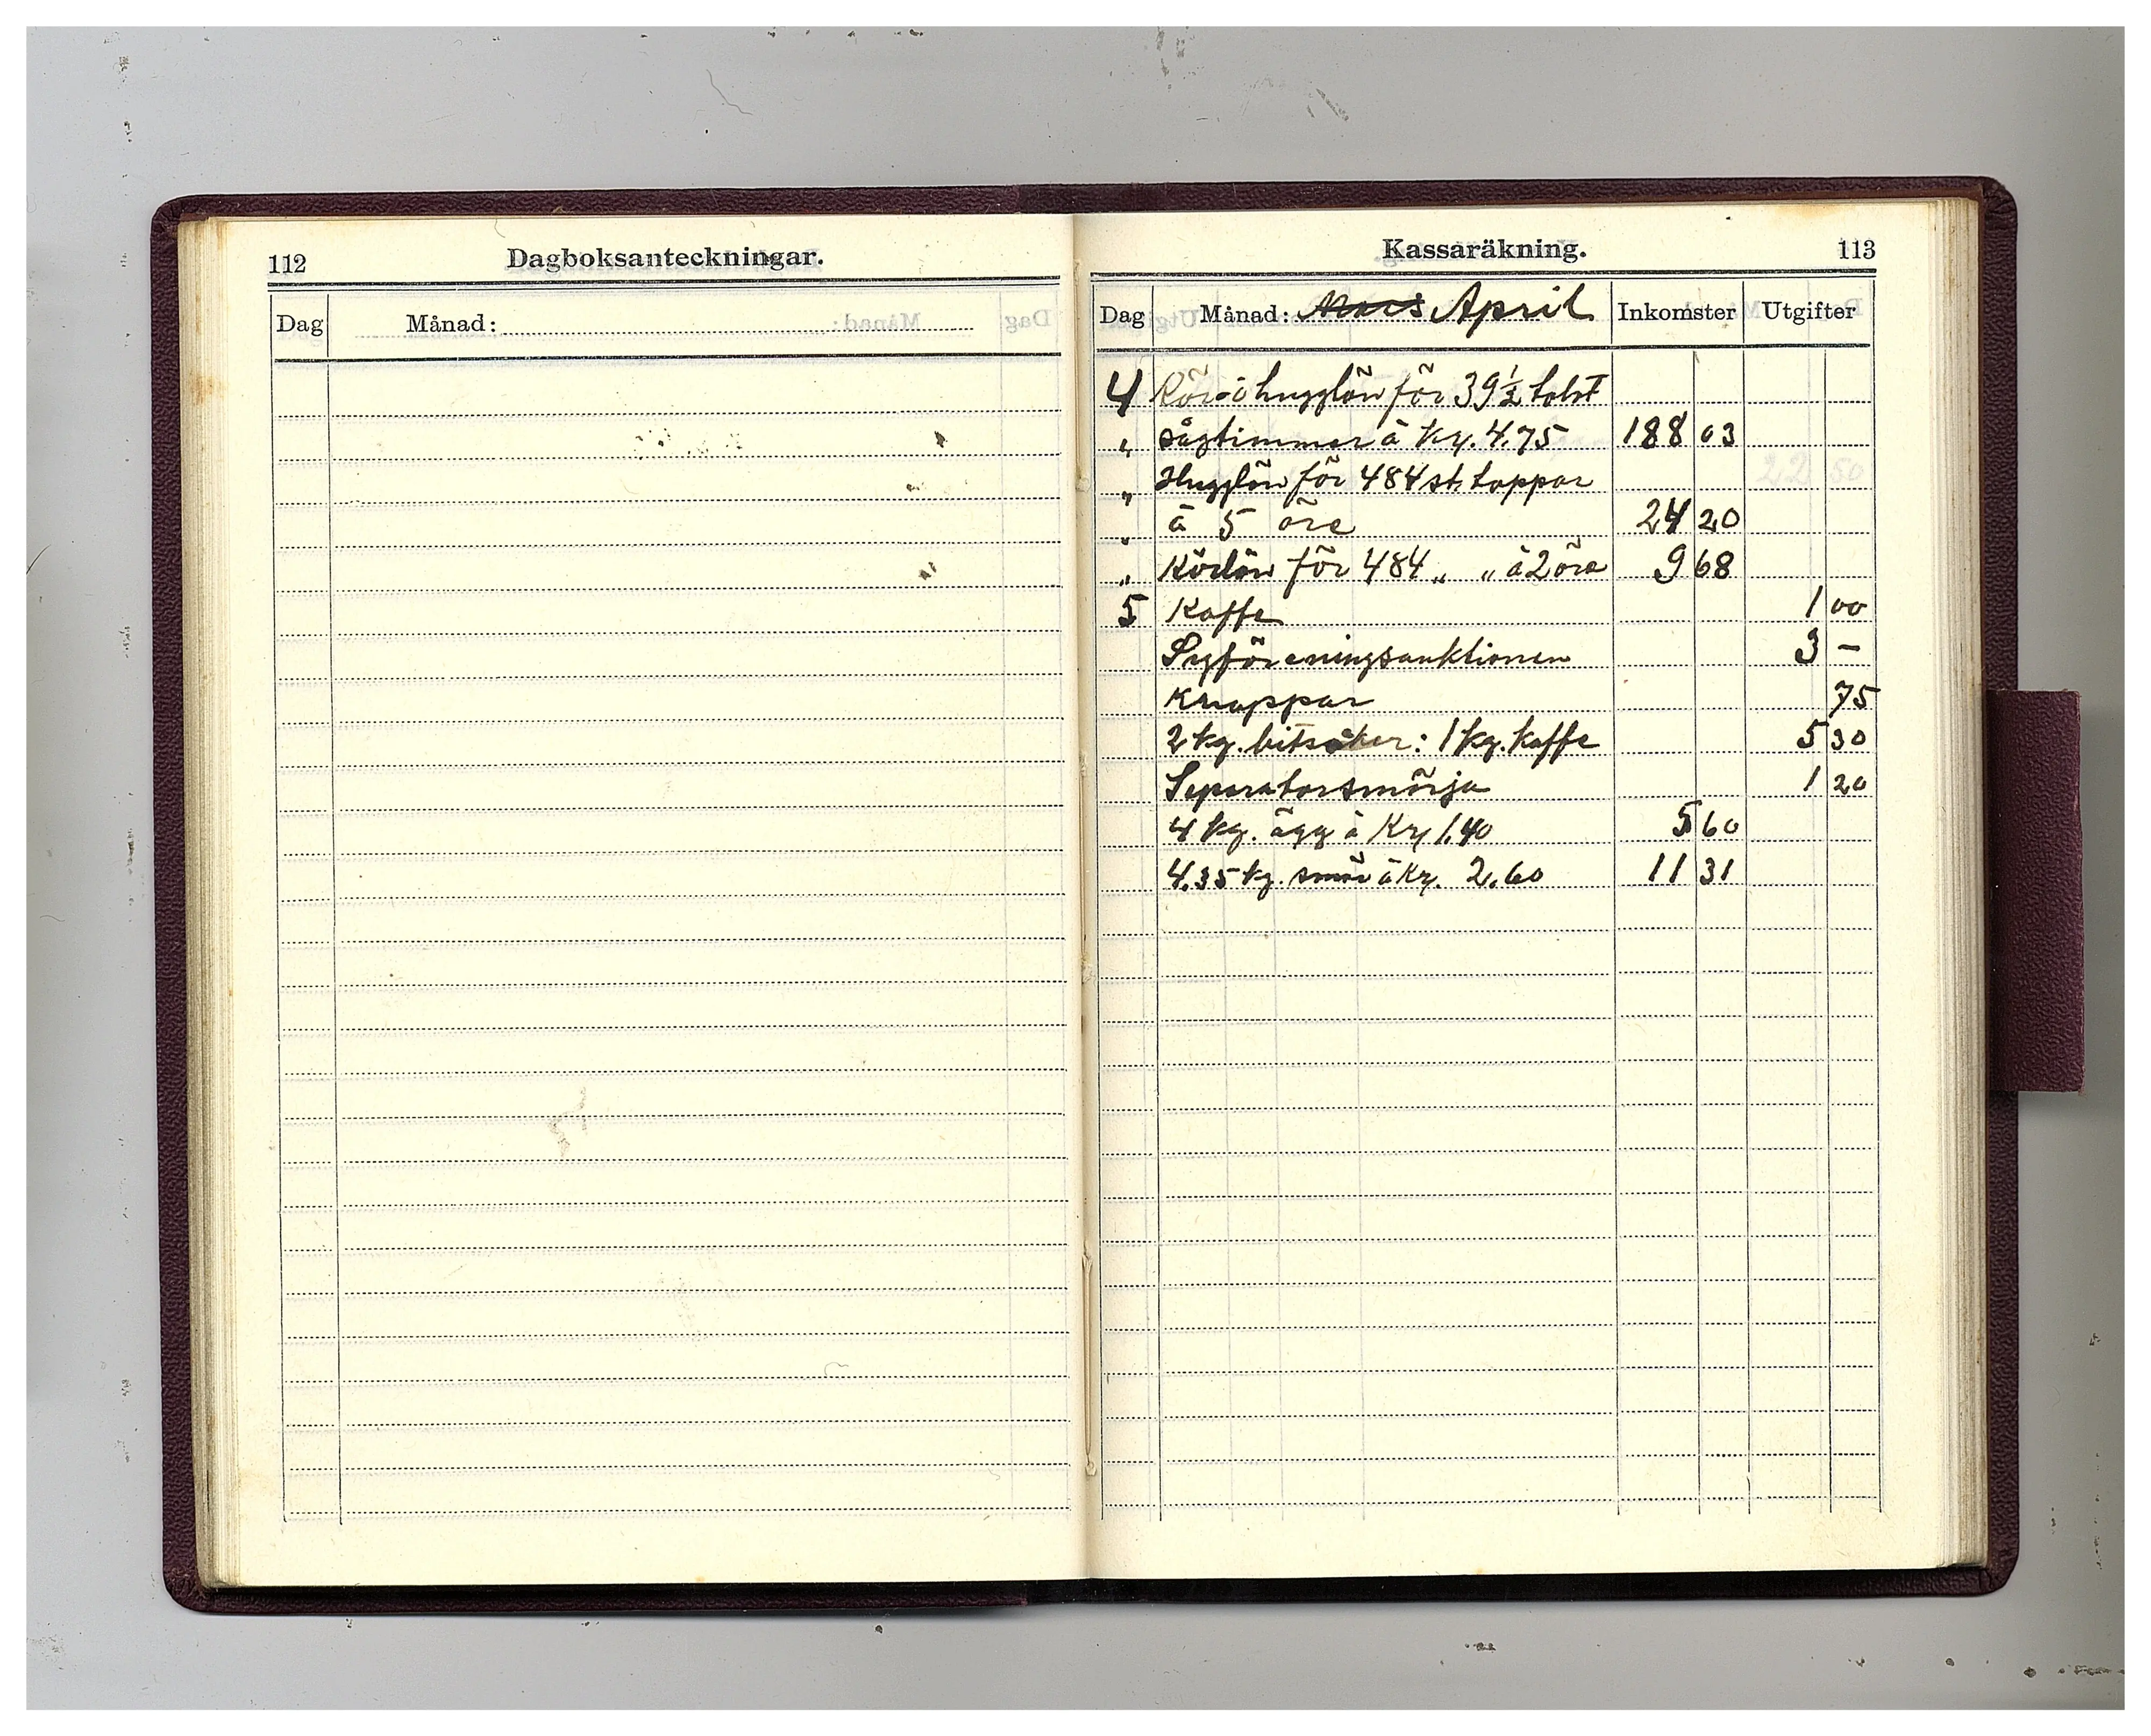 112 Dagboksanteckningar.
Dag Månad:
Kassaräkning. 113
Dag Månad: Mars April Inkomster Utgifter
4 Kör- o hugglön för 39 1/2 tolvt
" sågtimmer à Kr. 4.75 188 03
" Hugglön för 484 st. toppar
" à 5 öre 24 20
" Körlön för 484 " " à 2 öre 9 68
5 Kaffe 1 00
Syföreningsauktionen 3 –
Knappar 75
2 kg. bitsocker: 1 kg. kaffe 5 30
Seperatorsmörja 1 20
4 kg. ägg à Kr 1.40 5 60
4.35 kg. smör à Kr. 2.60 11 31